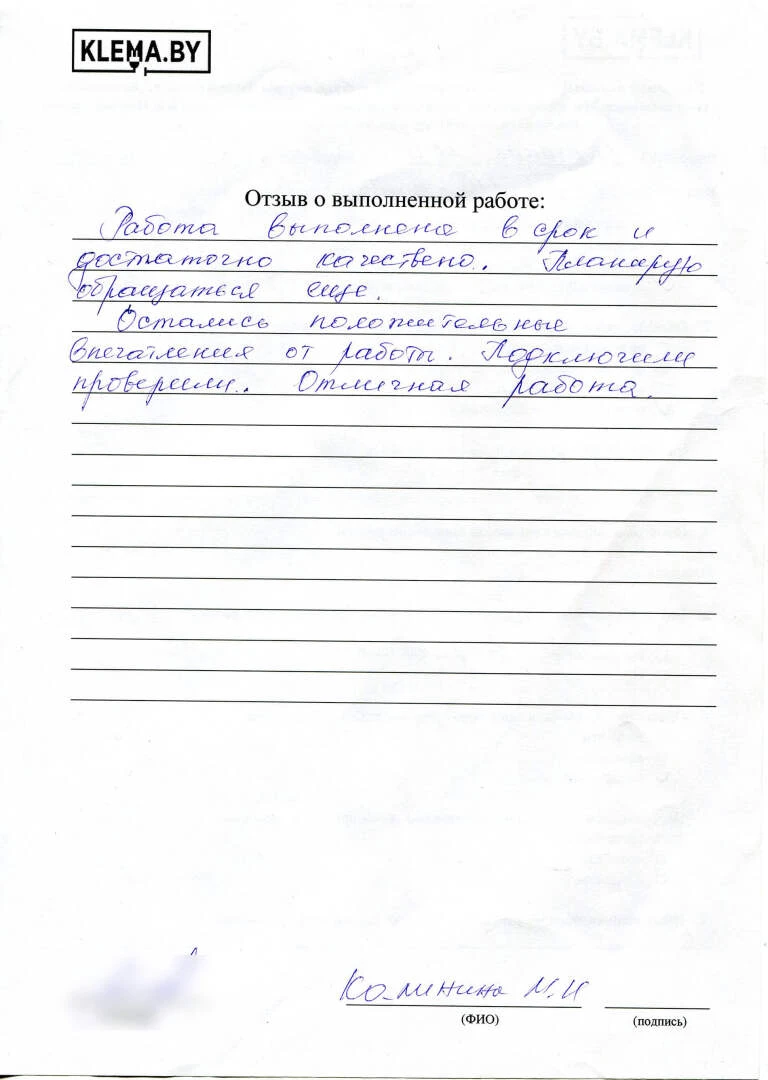 KLEMA.BY
Отзыв о выполненной работе:
Работа выполнена в срок и
достаточно качествено. Планирую
обращаться еще.
Остались положительные
впечатления от работы. Подключили
проверили. Отличная работа.
Калинина М.И
(ФИО)
(подпись)